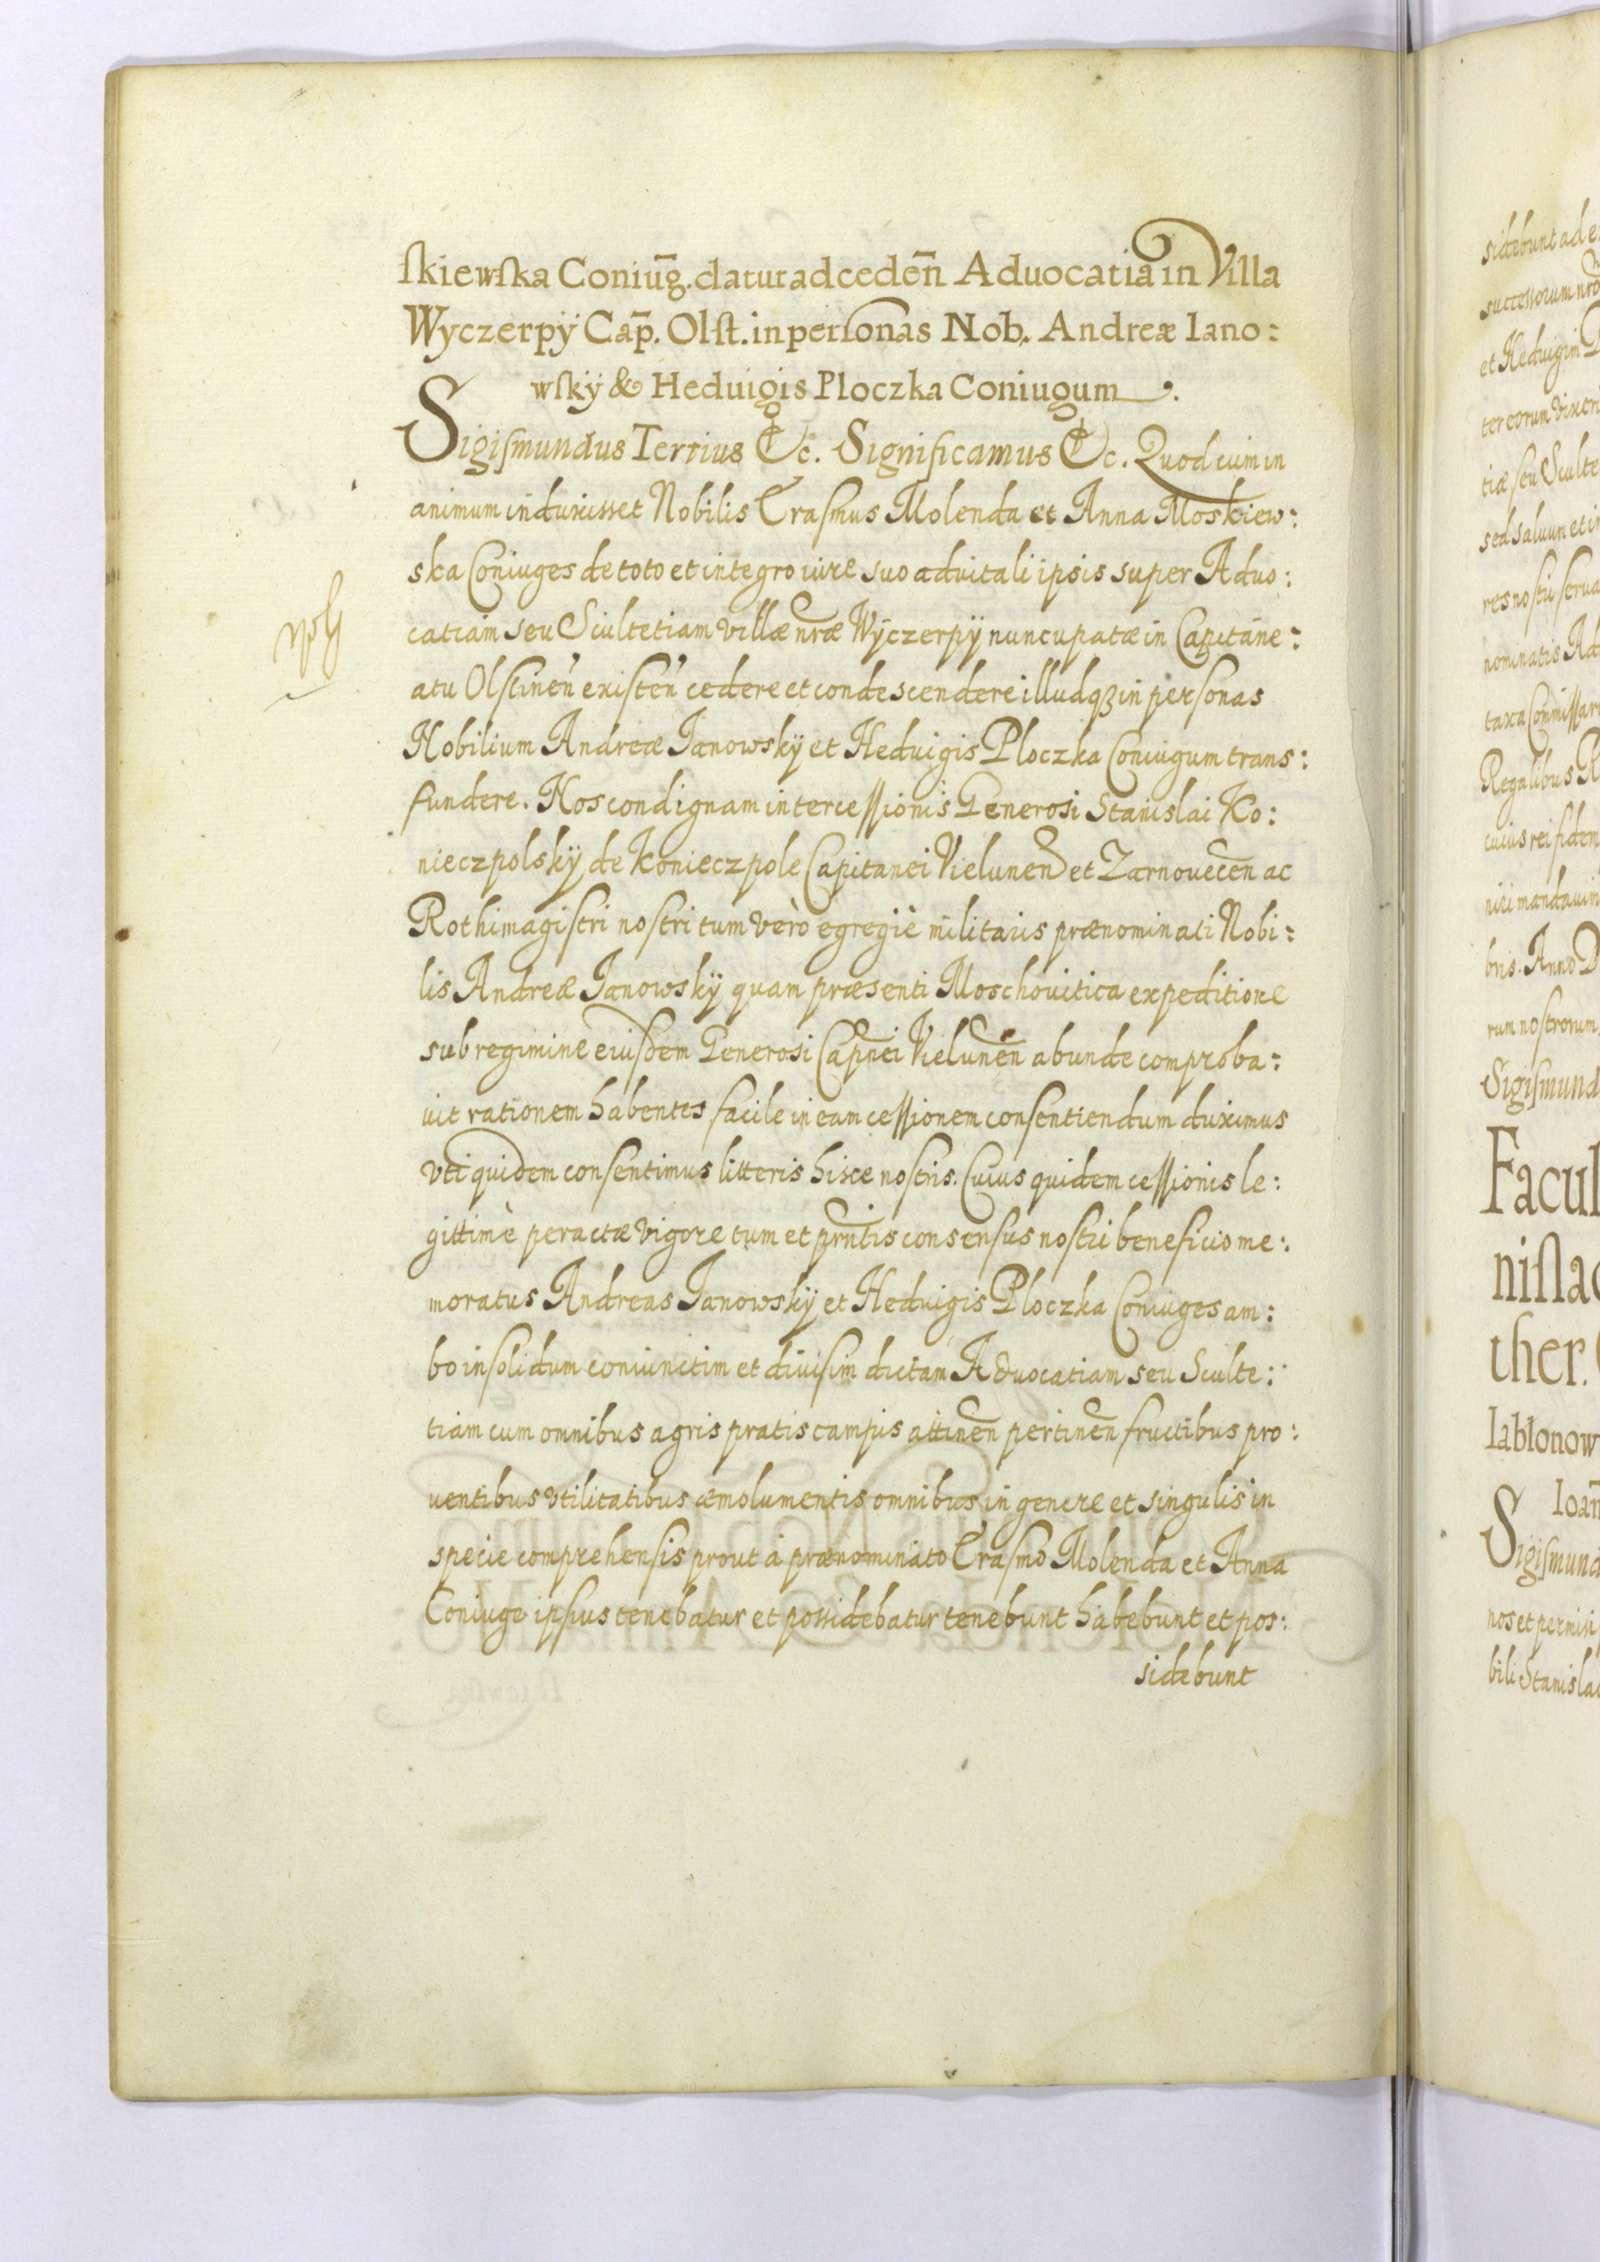 ſkiewſka Coniūg. datur ad cedeñ Aduocatia in Villa
Wyczerpÿ Cap̄. Olſt. in perſonas Nob. Andreæ Iano:
wſkÿ & Heduigis Ploczka Coniugum.
Sigiſmundus Tertius &c. Significamus &c. Quod cum in
animum induxisset Nobilis Erasmus Molenda et Anna Moskiew:
ska Coniuges de toto et integro iure suo aduitali ipsis super Aduo:
catiam seu Scultetiam villæ nræ Wÿczerpÿ nuncupatæ in Capitane:
atu Olstineñ existeñ cedere et condescendere illudqȝ in personas
Nobilium Andreæ Janowskÿ et Heduigis Ploczka Coniugum trans:
fundere. Nos condignam intercessionis Generosi Stanislai Ko:
nieczpolskÿ de Konieczpole Capitanei Vieluneñ et Zarnoueceñ ac
Rothimagistri nostri tum verò egregiè militaris prænominati Nobi:
lis Andreæ Janowskÿ quam præsenti Moschouitica expeditione
sub regimine eiusdem Generosi Capnei Vieluneñ abunde comproba:
uit rationem habentes facile in eam cessionem consentiendum duximus
vti quidem consentimus litteris hisce nostris. Cuius quidem cessionis le:
gittimè peractæ vigore tum et prntis consensus nostri beneficio me:
moratus Andreas Janowskÿ et Heduigis Ploczka Coniuges am:
bo insolidum coniunctim et diuisim dictam Aduocatiam seu Sculte:
tiam cum omnibus agris pratis campis attineñ pertineñ fructibus pro:
uentibus vtilitatibus æmolumentis omnibus in genere et singulis in
specie comprehensis prout à prænominato Erasmo Molenda et Anna
Coniuge ipsius tenebatur et possidebatur tenebunt habebunt et pos:
sidebunt
sidebunt ad e
successorum nr
et Heduigim P
ter eorum vixeri
tiæ seu Sculte
sed saluum et in
res nostri serua
nominatis Ad
taxa Commissari
Regalibus R
cuius rei fidem
niri mandauim
bris. Anno D
rum nostrorum
Sigiſmund
Facul
niſlao
ther.
Iabłonow
Ioañ
Sigiſmund
nos et permisi
bili Stanislao